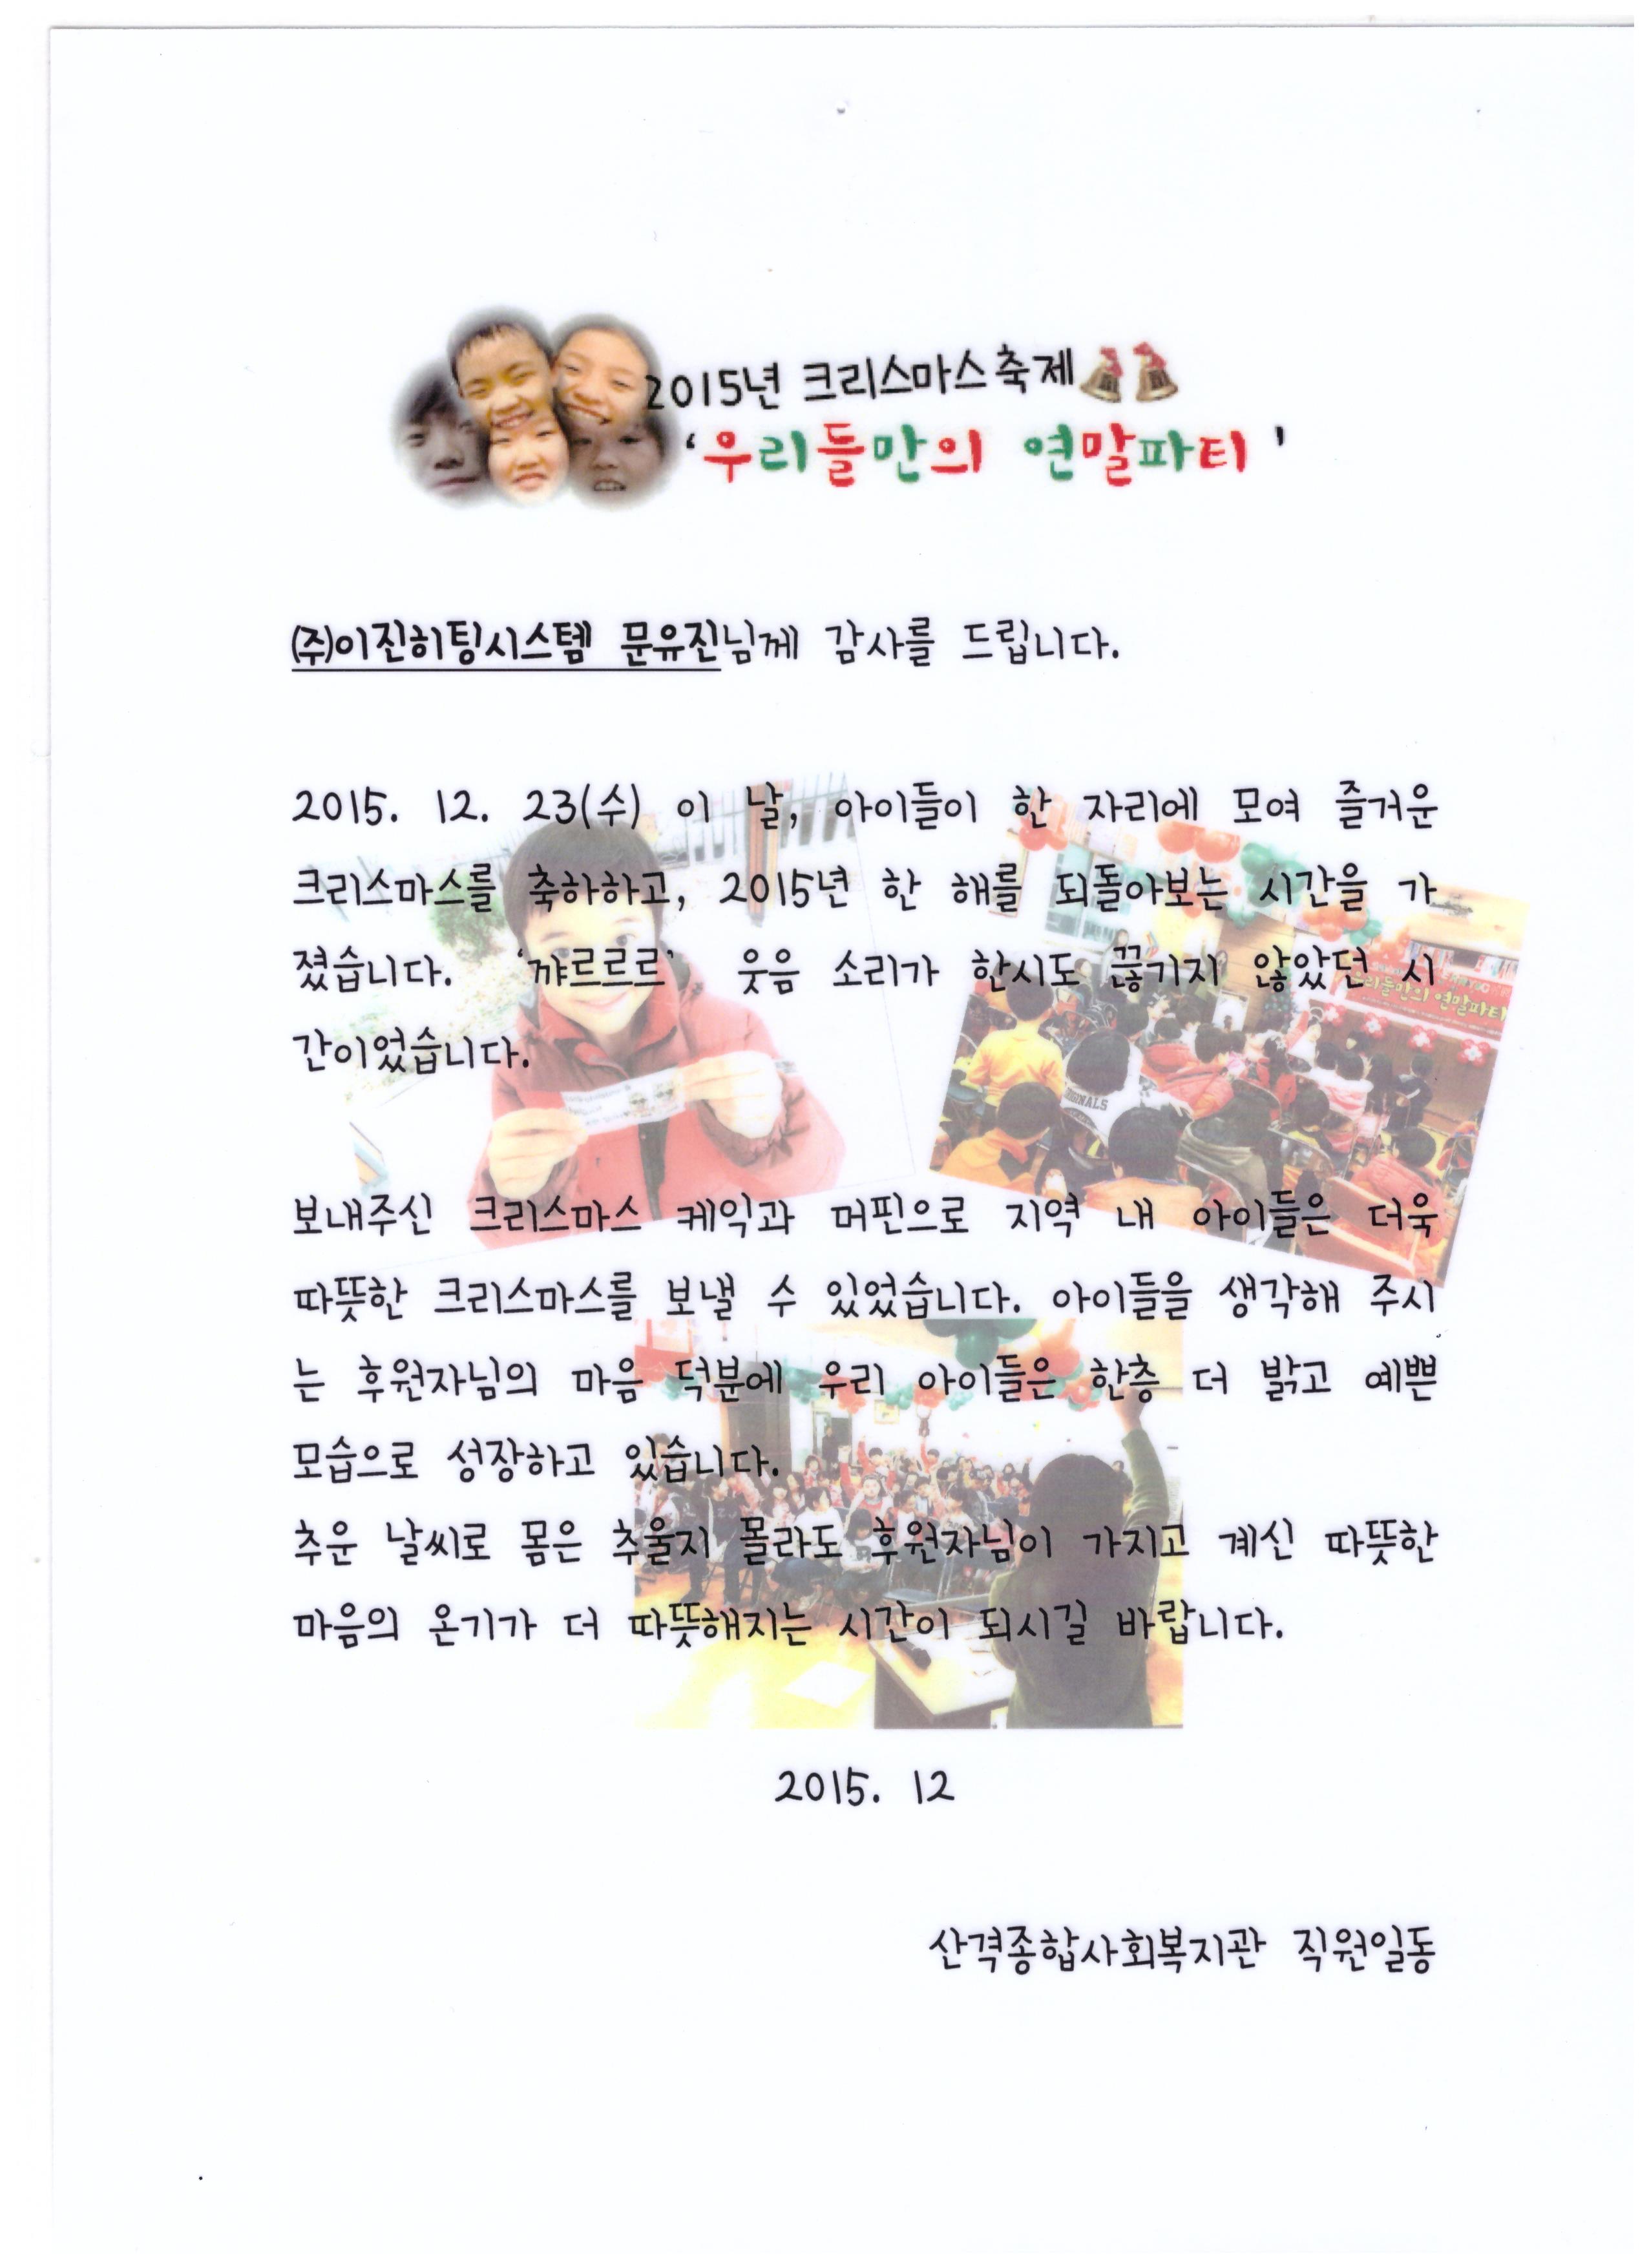 2015년 크리스마스축제
‘우리들만의 연말파티’
㈜이진히팅시스템 문유진님께 감사를 드립니다.
2015. 12. 23(수) 이 날, 아이들이 한 자리에 모여 즐거운
크리스마스를 축하하고, 2015년 한 해를 되돌아보는 시간을 가
졌습니다. ‘꺄르르르’ 웃음 소리가 한시도 끊기지 않았던 시
간이었습니다.
ORIGINALS
우리들만의 연말파티
보내주신 크리스마스 케익과 머핀으로 지역 내 아이들은 더욱
따뜻한 크리스마스를 보낼 수 있었습니다. 아이들을 생각해 주시
는 후원자님의 마음 덕분에 우리 아이들은 한층 더 밝고 예쁜
모습으로 성장하고 있습니다.
추운 날씨로 몸은 추울지 몰라도 후원자님이 가지고 계신 따뜻한
마음의 온기가 더 따뜻해지는 시간이 되시길 바랍니다.
2015. 12
산격종합사회복지관 직원일동